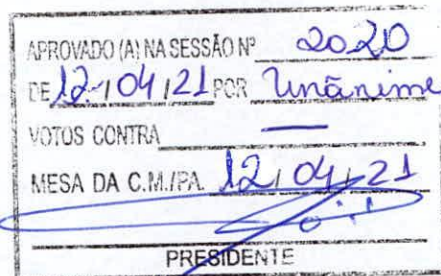 APROVADO (A) NA SESSÃO Nº 2020
DE 12/04/21 POR Unânime
VOTOS CONTRA —
MESA DA C.M./PA. 12/04/21
PRESIDENTE